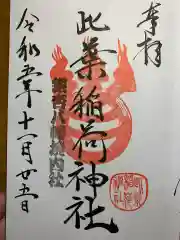 奉拝
此葉稲荷神社
八幡境内社
令和五年十一月廿五日